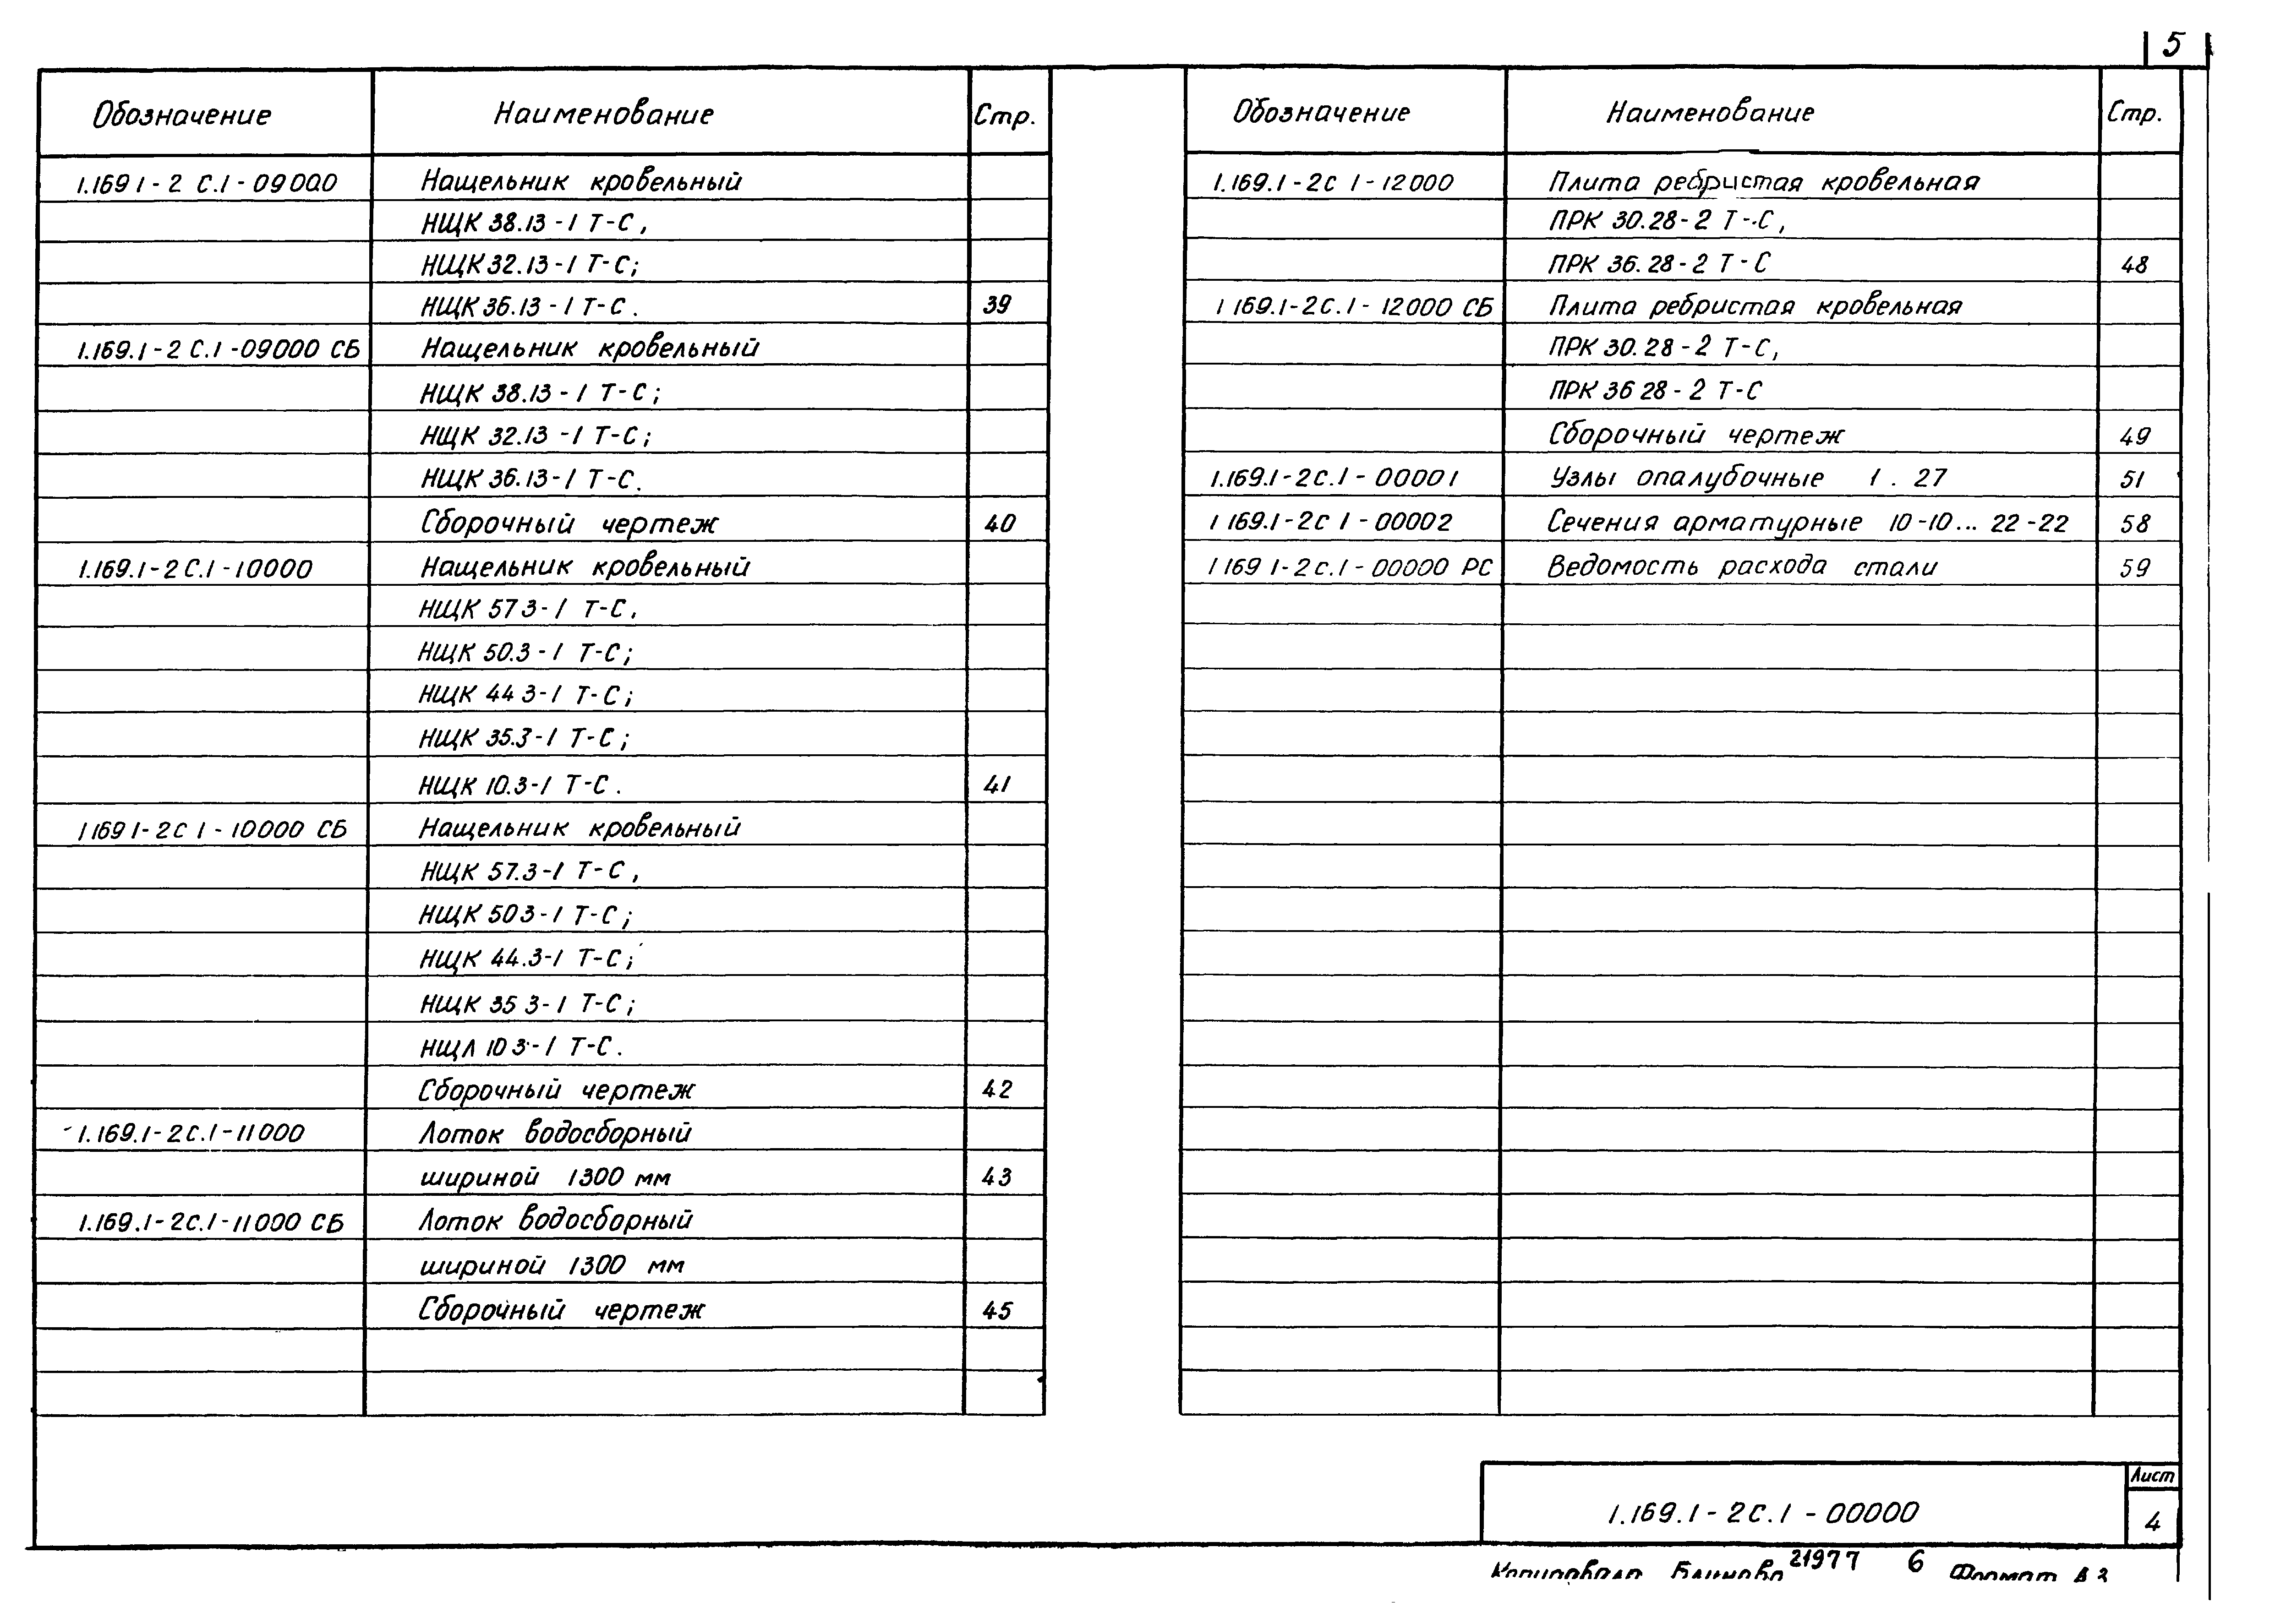 5
Обозначение Наименование Стр.
1.169 1-2 С.1-09000 Нащельник кровельный
НЩК 38.13-1 Т-С,
НЩК 32.13-1 Т-С;
НЩК 36.13-1 Т-С. 39
1.169.1-2 С.1-09000 СБ Нащельник кровельный
НЩК 38.13-1 Т-С;
НЩК 32.13-1 Т-С;
НЩК 36.13-1 Т-С.
Сборочный чертеж 40
1.169.1-2С.1-10000 Нащельник кровельный
НЩК 57 3-1 Т-С,
НЩК 50.3-1 Т-С;
НЩК 44 3-1 Т-С;
НЩК 35.3-1 Т-С;
НЩК 10.3-1 Т-С. 41
1 169 1-2С 1-10000 СБ Нащельник кровельный
НЩК 57.3-1 Т-С,
НЩК 50 3-1 Т-С;
НЩК 44.3-1 Т-С;
НЩК 35 3-1 Т-С;
НЩЛ 10 3-1 Т-С.
Сборочный чертеж 42
1.169.1-2С.1-11000 Лоток водосборный
шириной 1300 мм 43
1.169.1-2С.1-11000 СБ Лоток водосборный
шириной 1300 мм
Сборочный чертеж 45
Обозначение Наименование Стр.
1.169.1-2С 1-12000 Плита ребристая кровельная
ПРК 30.28-2 Т-С,
ПРК 36.28-2 Т-С 48
1 169.1-2С.1-12000 СБ Плита ребристая кровельная
ПРК 30.28-2 Т-С,
ПРК 36 28-2 Т-С
Сборочный чертеж 49
1.169.1-2С.1-00001 Узлы опалубочные 1 . 27 51
1 169.1-2С 1-00002 Сечения арматурные 10-10... 22-22 58
1 169 1-2С.1-00000 РС Ведомость расхода стали 59
1.169.1-2С.1-00000
Лист
4
Копировала Блинова 21977 6 Формат А3